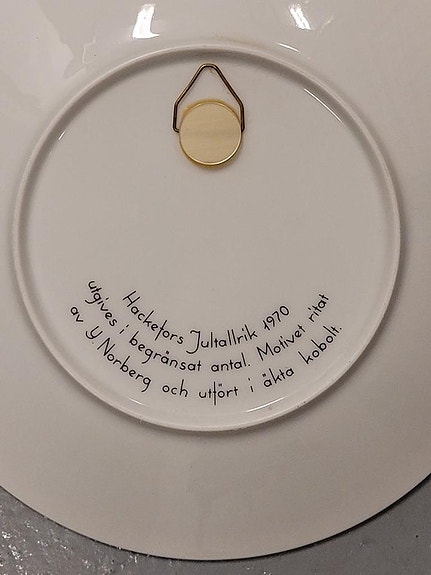 Hackefors Jultallrik 1970
utgives i begränsat antal. Motivet ritat
av Y Norberg och utfört i äkta kobolt.